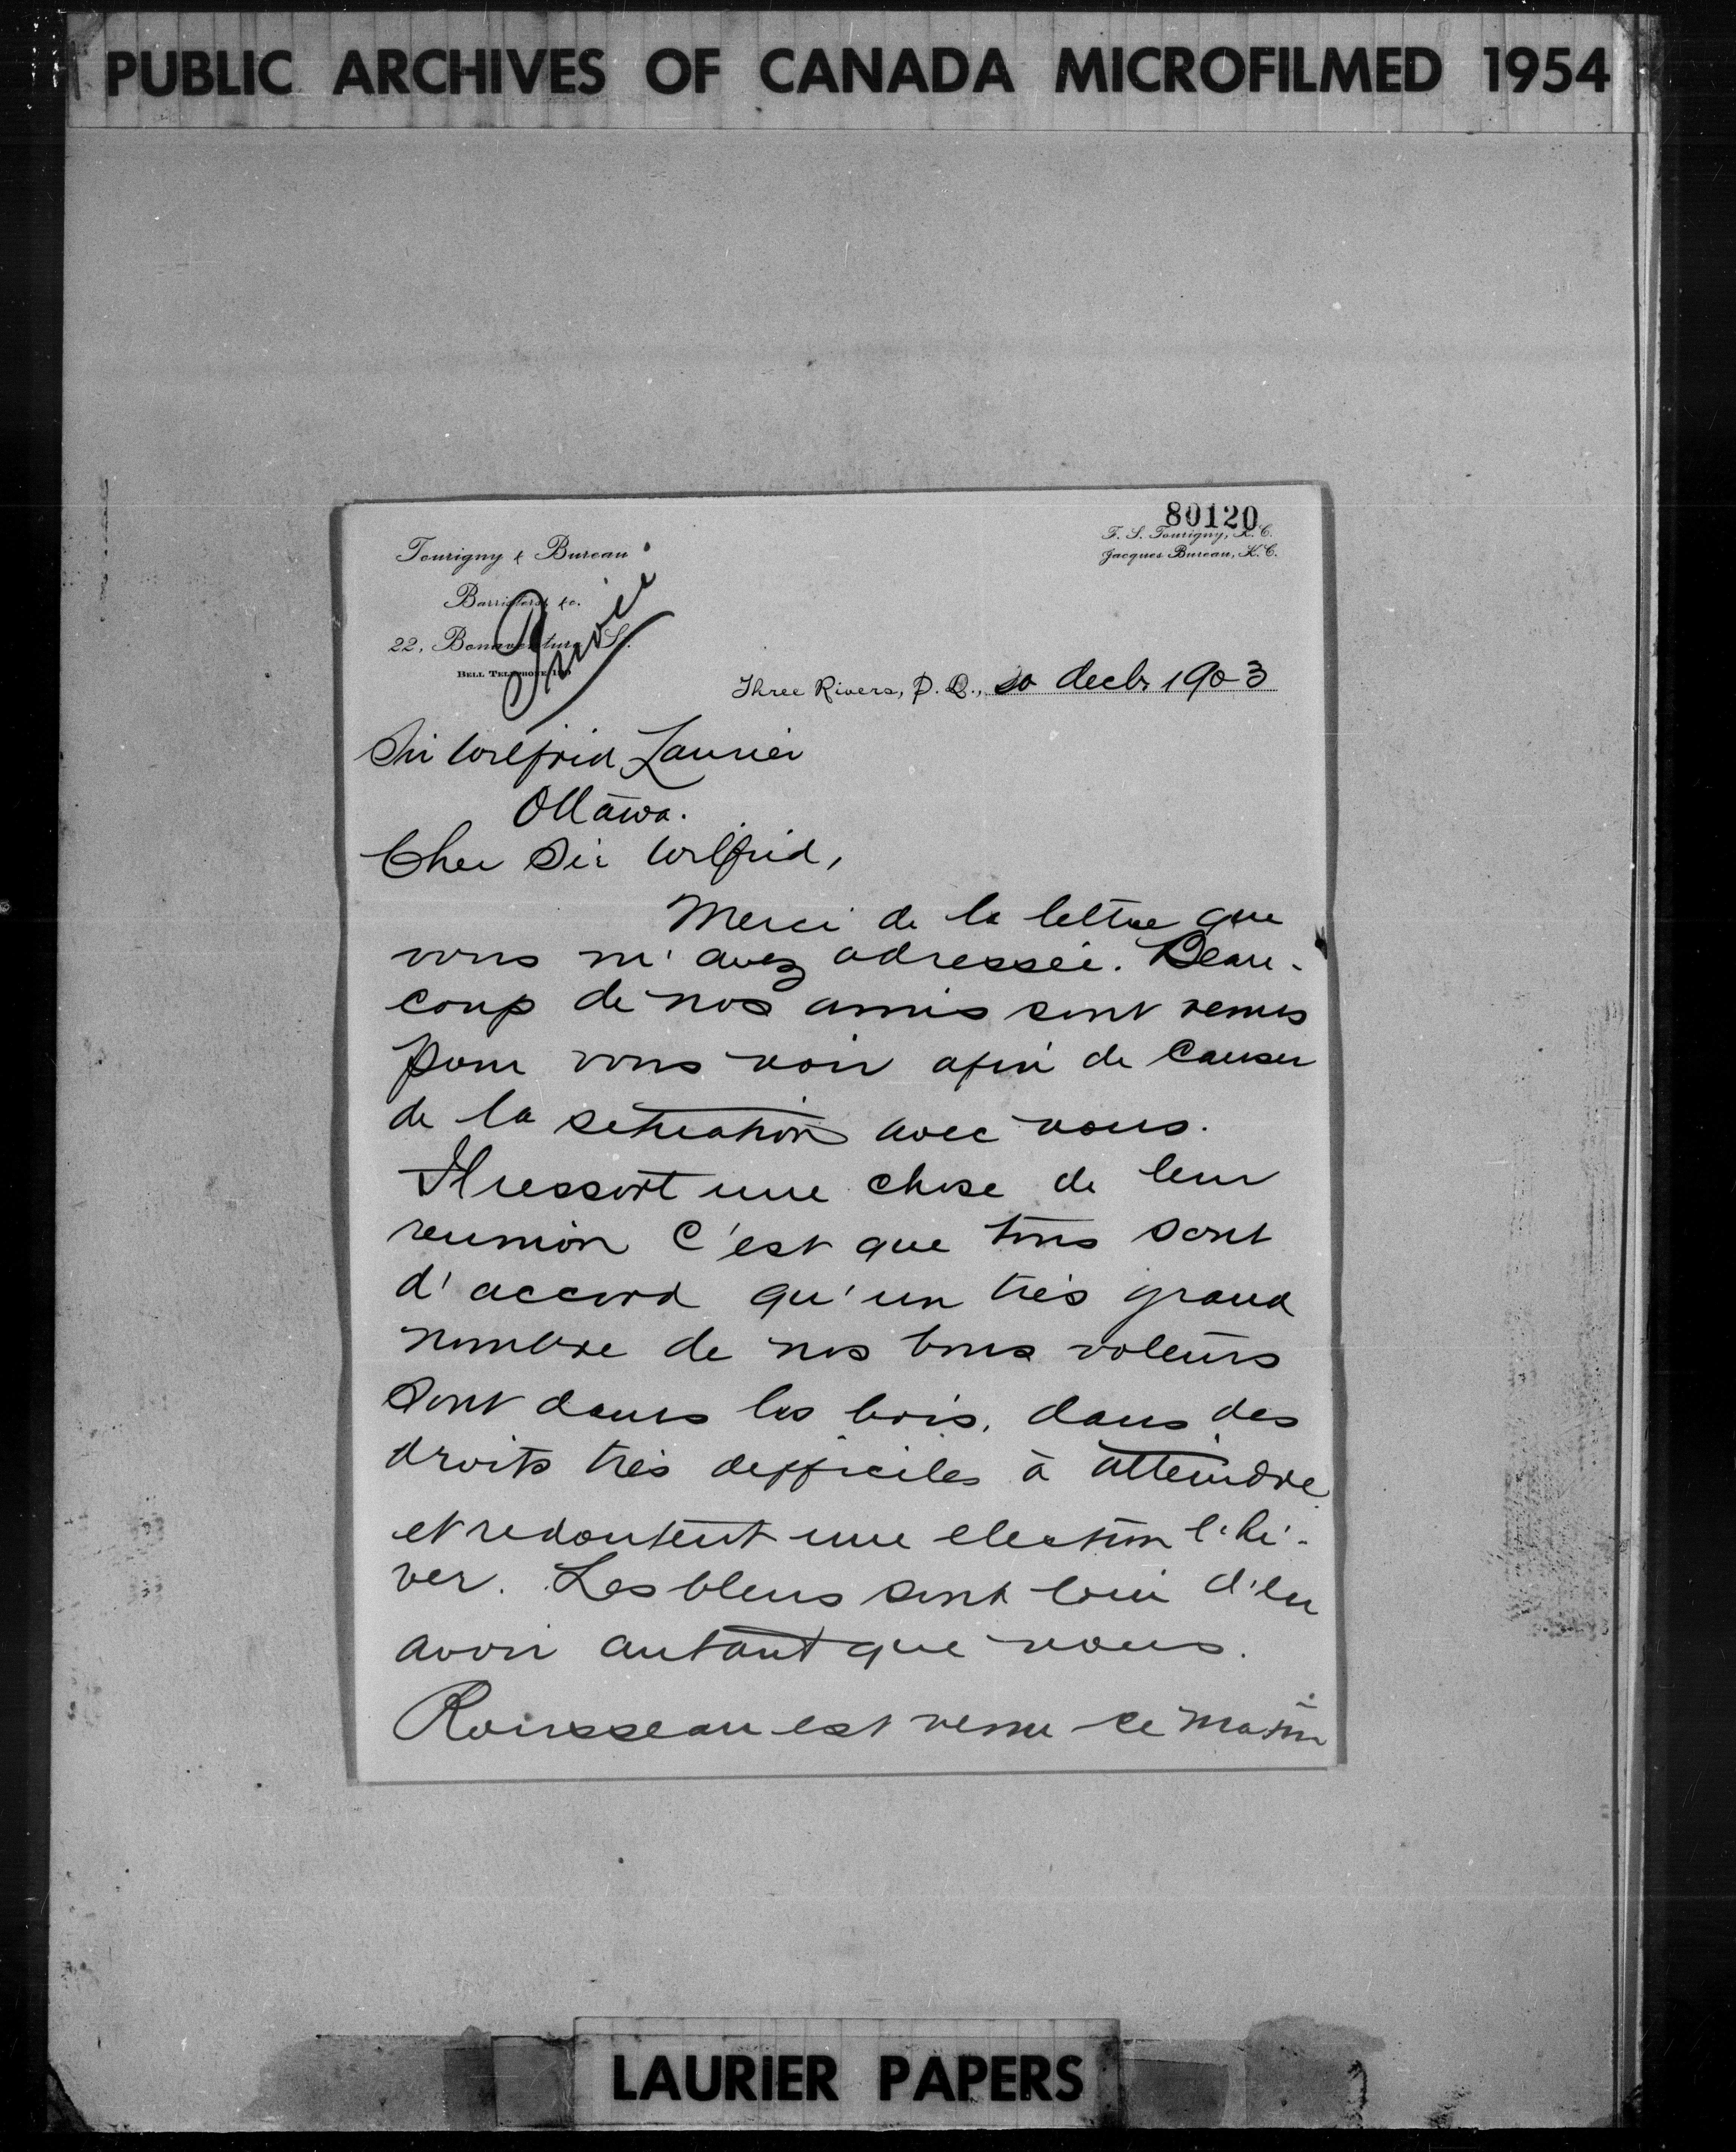 PUBLIC ARCHIVES OF CANADA MICROFILMED 1954
80120
F. S. Tourigny, K.C.
Jacques Bureau, K.C.
Tourigny & Bureau
Barristers &c.
22, Bonaventure St.
BELL TELEPHONE
Privée
Three Rivers, P. Q., decbr 1903
Sir Wilfrid Laurier
Ottawa.
Cher Sir Wilfrid,
Merci de la lettre que
vous m'avez adressée. Beau-
coup de nos amis sont venus
pour vous voir afin de causer
de la situation avec vous.
Il ressort une chose de leur
reunion c'est que tous sont
d'accord qu'un très grand
nombre de nos bons voteurs
sont dans les bois, dans des
droits très difficiles à atteindre
et redoutent une election l'hi-
ver. Les bleus sont loin d'en
avoir autant que nous.
Rousseau est venu ce matin
LAURIER PAPERS